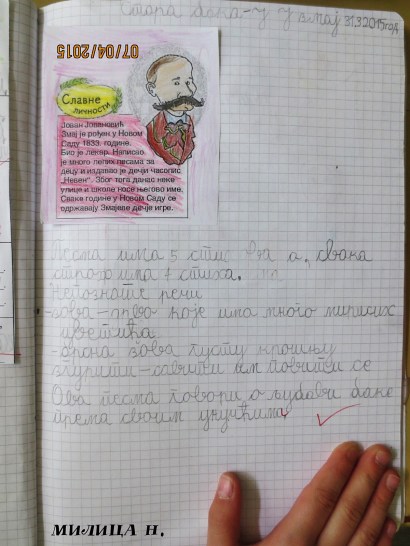 Стара бака-у ј змај 31.3.2015 год
07/04/2015
Славне
личности
Јован Јовановић
Змај је рођен у Новом
Саду 1833. године.
Био је лекар. Написао
је много лепих песама за
децу и издавао је дечји часопис
„Невен". Због тога данас неке
улице и школе носе његово име.
Сваке године у Новом Саду се
одржавају Змајеве дечје игре.
Песма има 5 строфа, свака
строфа има 4 стиха.
Непознате речи
-зова - дрво које има много мирисних
цветића
-крона зова густу крошњу
згурити - савити им повити се
Ова песма говори о љубави баке
према својим унучићима
МИЛИЦА Н.